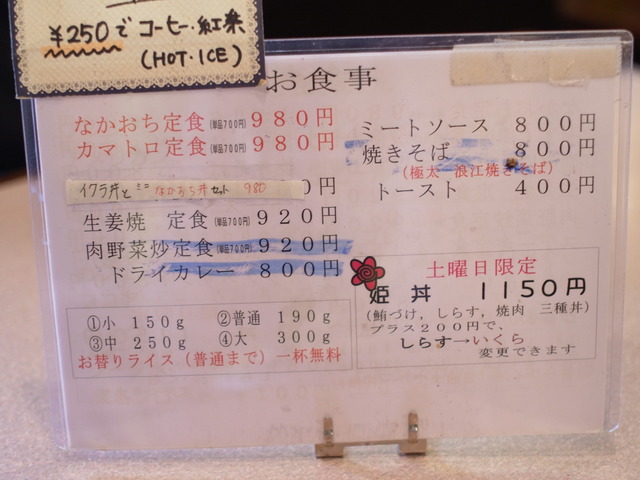 ¥250でコーヒー・紅茶
(HOT・ICE)
お食事
なかおち定食(単品700円)980円
カマトロ定食(単品700円)980円
イクラ丼とミニなかおち丼セット 980
0円
生姜焼 定食(単品700円)920円
肉野菜炒定食(単品700円)920円
ドライカレー 800円
①小 150g ②普通 190g
③中 250g ④大 300g
お替りライス(普通まで)一杯無料
ミートソース 800円
焼きそば 800円
(極太 浪江焼きそば)
トースト 400円
土曜日限定
姫丼 1150円
(鮪づけ,しらす,焼肉 三種丼)
プラス200円で、
しらす→いくら
変更できます